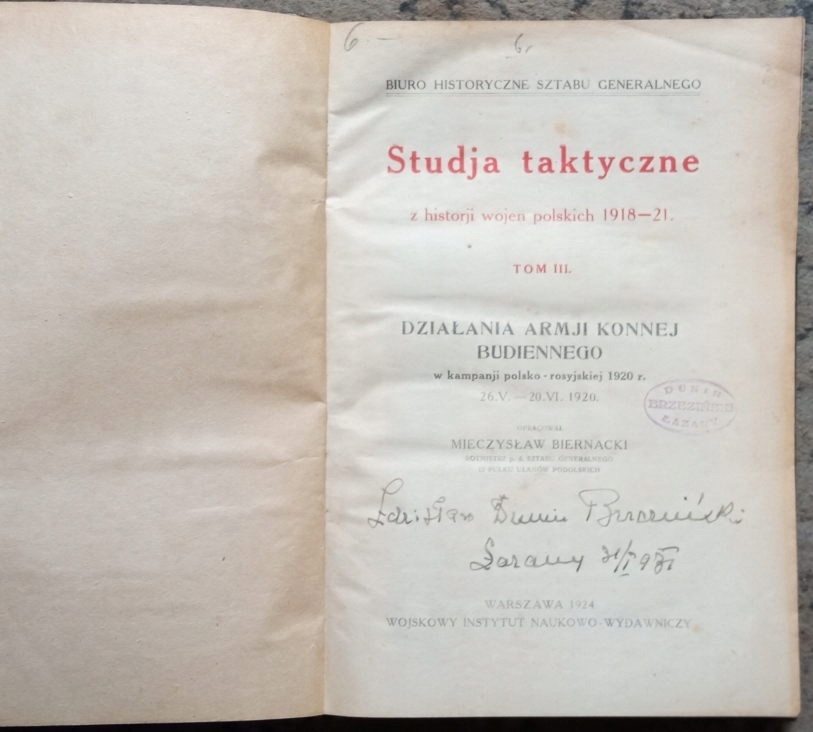 6 —
6,
BIURO HISTORYCZNE SZTABU GENERALNEGO
Studja taktyczne
z historji wojen polskich 1918—21.
TOM III.
DZIAŁANIA ARMJI KONNEJ
BUDIENNEGO
w kampanji polsko-rosyjskiej 1920 r.
26.V.—20.VI. 1920.
DUNIN
BRZEZIŃSKI
OPRACOWAŁ
MIECZYSŁAW BIERNACKI
ROTMISTRZ p. d. SZTABU GENERALNEGO
12 PUŁKU UŁANÓW PODOLSKICH
Zdzisław Dunin Brzeziński
WARSZAWA 1924
WOJSKOWY INSTYTUT NAUKOWO-WYDAWNICZY